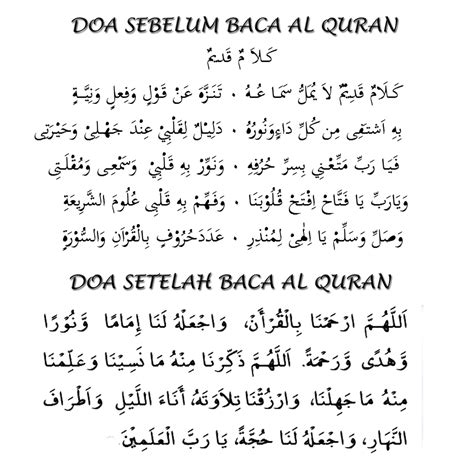 DOA SEBELUM BACA AL QURAN
كَلاَ مٌ قَدِيْمٌ
كَلاَمٌ قَدِيْمٌ لاَ يُمَلُّ سَمَا عُهُ ٠ تَنَزَّهَ عَنْ قَوْلٍ وَفِعْلٍ وَنِيَّةٍ
بِهِ اَشْتَفِى مِنْ كُلِّ دَاءٍ وَنُوْرُهُ ٠ دَلِيْلٌ لِقَلْبِيْ عِنْدَ جَهْلِيْ وَحَيْرَتِى
فَيَا رَبِّ مَتِّعْنِي بِسِرِّ حُرُفِهِ ٠ وَنَوِّرْ بِهِ قَلْبِيْ وَسَمْعِى وَمُقْلَتِى
وَيَارَبِّ يَا فَتَّاحُ اِفْتَحْ قُلُوْبَنَا ٠ وَفَهِّمْ بِهِ قَلْبِى عُلُوْمَ الشَّرِيْعَةِ
وَصَلِّ وَسَلِّمْ يَا اِلٰهِيْ لِمُنْذِرٍ ٠ عَدَدَ حُرُوْفٍ بِالْقُرْاَنِ وَالسُّوْرَةِ
DOA SETELAH BACA AL QURAN
اَللَّهُمَّ ارْحَمْنَا بِالْقُرْأَنْ، وَاجْعَلْهُ لَنَا إِمَامًا وَّنُوْرًا
وَّهُدًى وَّرَحْمَةً. اَللَّهُمَّ ذَكِّرْنَا مِنْهُ مَا نَسِيْنَا وَعَلِّمْنَا
مِنْهُ مَا جَهِلْنَا، وَارْزُقْنَا تِلاَوَتَهُ، أَنَاءَ اللَّيْلِ وَاَطْرَافَ
النَّهَارِ، وَاجْعَلْهُ لَنَا حُجَّةً، يَا رَبَّ الْعَلَمِيْنَ